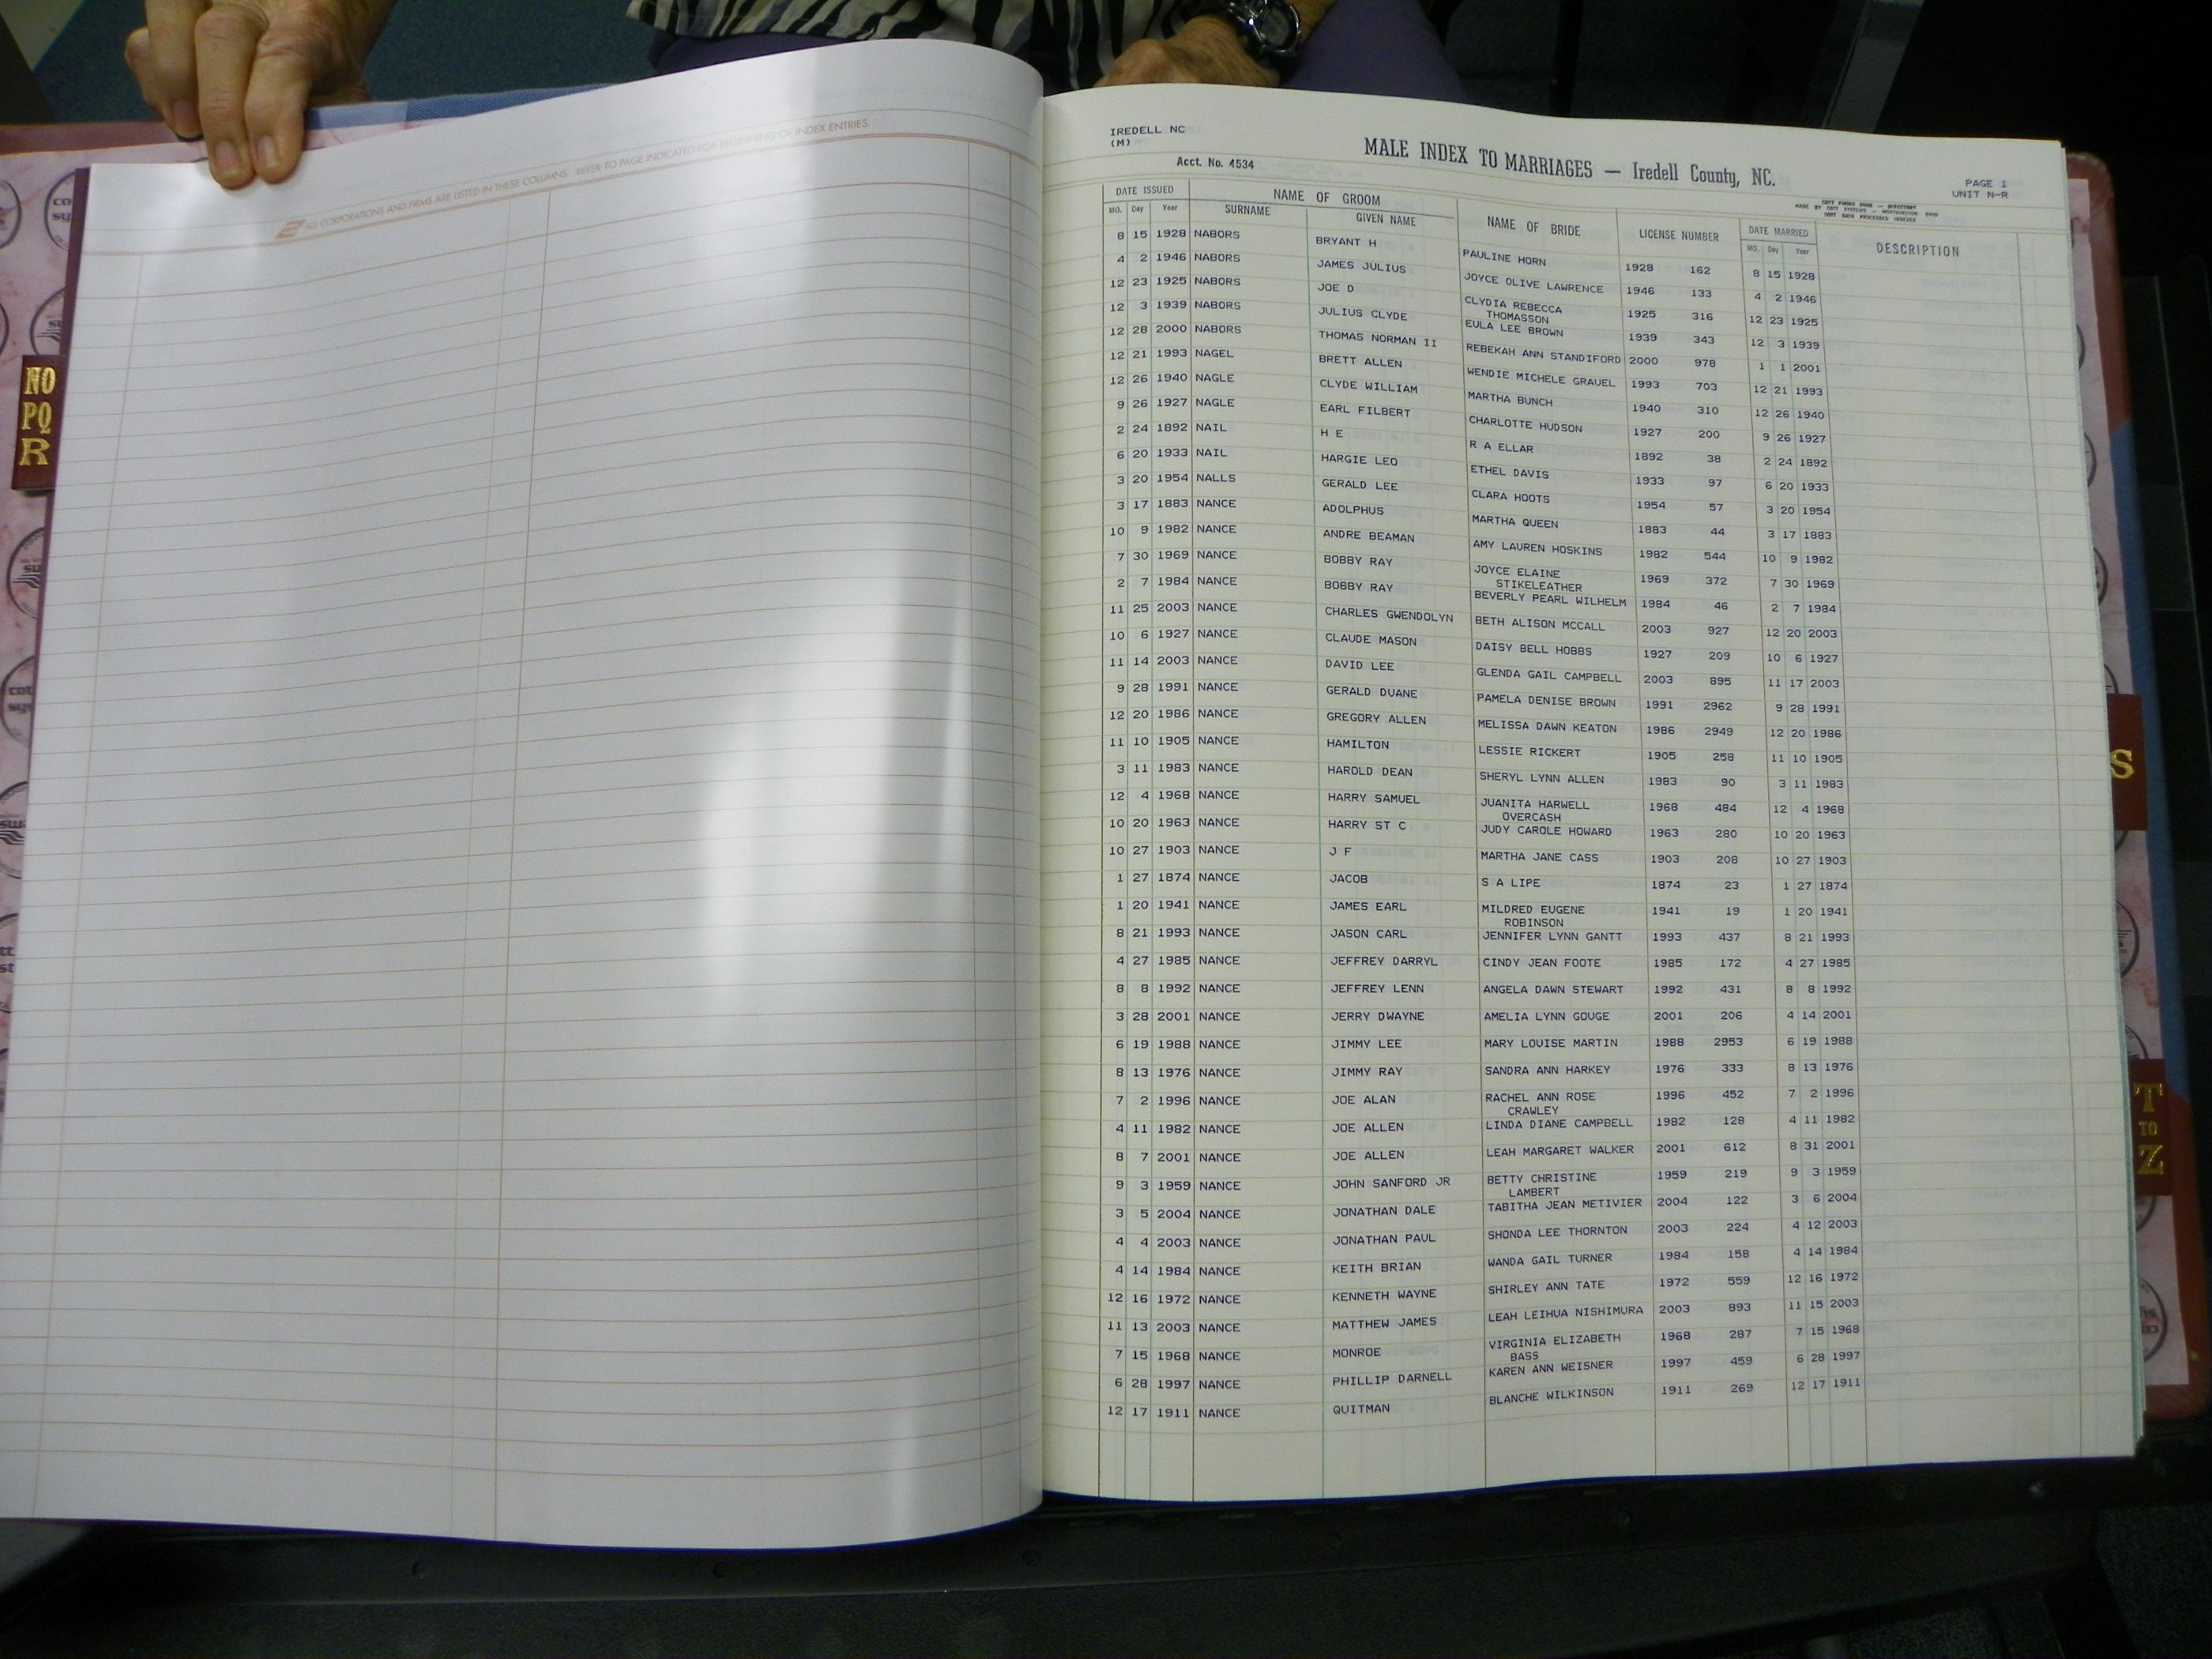 ALL CORPORATIONS AND FIRMS ARE LISTED IN THESE COLUMNS. REFER TO PAGE INDICATED FOR BEGINNING OF INDEX ENTRIES.
NO
PQ
R
IREDELL NC
(M)
Acct. No. 4534
MALE INDEX TO MARRIAGES — Iredell County, NC.
PAGE 1
UNIT N-R
DATE ISSUED NAME OF GROOM NAME OF BRIDE LICENSE NUMBER DATE MARRIED DESCRIPTION
MO. Day Year SURNAME GIVEN NAME MO. Day Year
8 15 1928 NABORS BRYANT H PAULINE HORN 1928 162 8 15 1928
4 2 1946 NABORS JAMES JULIUS JOYCE OLIVE LAWRENCE 1946 133 4 2 1946
12 23 1925 NABORS JOE D CLYDIA REBECCA 1925 316 12 23 1925
THOMASSON
12 3 1939 NABORS JULIUS CLYDE EULA LEE BROWN 1939 343 12 3 1939
12 28 2000 NABORS THOMAS NORMAN II REBEKAH ANN STANDIFORD 2000 978 1 1 2001
12 21 1993 NAGEL BRETT ALLEN WENDIE MICHELE GRAUEL 1993 703 12 21 1993
12 26 1940 NAGLE CLYDE WILLIAM MARTHA BUNCH 1940 310 12 26 1940
9 26 1927 NAGLE EARL FILBERT CHARLOTTE HUDSON 1927 200 9 26 1927
2 24 1892 NAIL H E R A ELLAR 1892 38 2 24 1892
6 20 1933 NAIL HARGIE LEO ETHEL DAVIS 1933 97 6 20 1933
3 20 1954 NALLS GERALD LEE CLARA HOOTS 1954 57 3 20 1954
3 17 1883 NANCE ADOLPHUS MARTHA QUEEN 1883 44 3 17 1883
10 9 1982 NANCE ANDRE BEAMAN AMY LAUREN HOSKINS 1982 544 10 9 1982
7 30 1969 NANCE BOBBY RAY JOYCE ELAINE 1969 372 7 30 1969
STIKELEATHER
2 7 1984 NANCE BOBBY RAY BEVERLY PEARL WILHELM 1984 46 2 7 1984
11 25 2003 NANCE CHARLES GWENDOLYN BETH ALISON MCCALL 2003 927 12 20 2003
10 6 1927 NANCE CLAUDE MASON DAISY BELL HOBBS 1927 209 10 6 1927
11 14 2003 NANCE DAVID LEE GLENDA GAIL CAMPBELL 2003 895 11 17 2003
9 28 1991 NANCE GERALD DUANE PAMELA DENISE BROWN 1991 2962 9 28 1991
12 20 1986 NANCE GREGORY ALLEN MELISSA DAWN KEATON 1986 2949 12 20 1986
11 10 1905 NANCE HAMILTON LESSIE RICKERT 1905 258 11 10 1905
3 11 1983 NANCE HAROLD DEAN SHERYL LYNN ALLEN 1983 90 3 11 1983
12 4 1968 NANCE HARRY SAMUEL JUANITA HARWELL 1968 484 12 4 1968
OVERCASH
10 20 1963 NANCE HARRY ST C JUDY CAROLE HOWARD 1963 280 10 20 1963
10 27 1903 NANCE J F MARTHA JANE CASS 1903 208 10 27 1903
1 27 1874 NANCE JACOB S A LIPE 1874 23 1 27 1874
1 20 1941 NANCE JAMES EARL MILDRED EUGENE 1941 19 1 20 1941
ROBINSON
8 21 1993 NANCE JASON CARL JENNIFER LYNN GANTT 1993 437 8 21 1993
4 27 1985 NANCE JEFFREY DARRYL CINDY JEAN FOOTE 1985 172 4 27 1985
8 8 1992 NANCE JEFFREY LENN ANGELA DAWN STEWART 1992 431 8 8 1992
3 28 2001 NANCE JERRY DWAYNE AMELIA LYNN GOUGE 2001 206 4 14 2001
6 19 1988 NANCE JIMMY LEE MARY LOUISE MARTIN 1988 2953 6 19 1988
8 13 1976 NANCE JIMMY RAY SANDRA ANN HARKEY 1976 333 8 13 1976
7 2 1996 NANCE JOE ALAN RACHEL ANN ROSE 1996 452 7 2 1996
CRAWLEY
4 11 1982 NANCE JOE ALLEN LINDA DIANE CAMPBELL 1982 128 4 11 1982
8 7 2001 NANCE JOE ALLEN LEAH MARGARET WALKER 2001 612 8 31 2001
9 3 1959 NANCE JOHN SANFORD JR BETTY CHRISTINE 1959 219 9 3 1959
LAMBERT
3 5 2004 NANCE JONATHAN DALE TABITHA JEAN METIVIER 2004 122 3 6 2004
4 4 2003 NANCE JONATHAN PAUL SHONDA LEE THORNTON 2003 224 4 12 2003
4 14 1984 NANCE KEITH BRIAN WANDA GAIL TURNER 1984 158 4 14 1984
12 16 1972 NANCE KENNETH WAYNE SHIRLEY ANN TATE 1972 559 12 16 1972
11 13 2003 NANCE MATTHEW JAMES LEAH LEIHUA NISHIMURA 2003 893 11 15 2003
7 15 1968 NANCE MONROE VIRGINIA ELIZABETH 1968 287 7 15 1968
BASS
6 28 1997 NANCE PHILLIP DARNELL KAREN ANN WEISNER 1997 459 6 28 1997
12 17 1911 NANCE QUITMAN BLANCHE WILKINSON 1911 269 12 17 1911
S
T
TO
Z